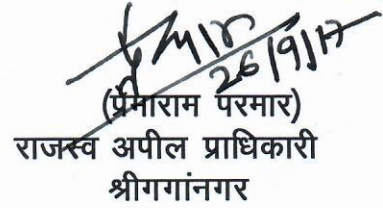 26/9/17
(प्रेमाराम परमार)
राजस्व अपील प्राधिकारी
श्रीगगांनगर